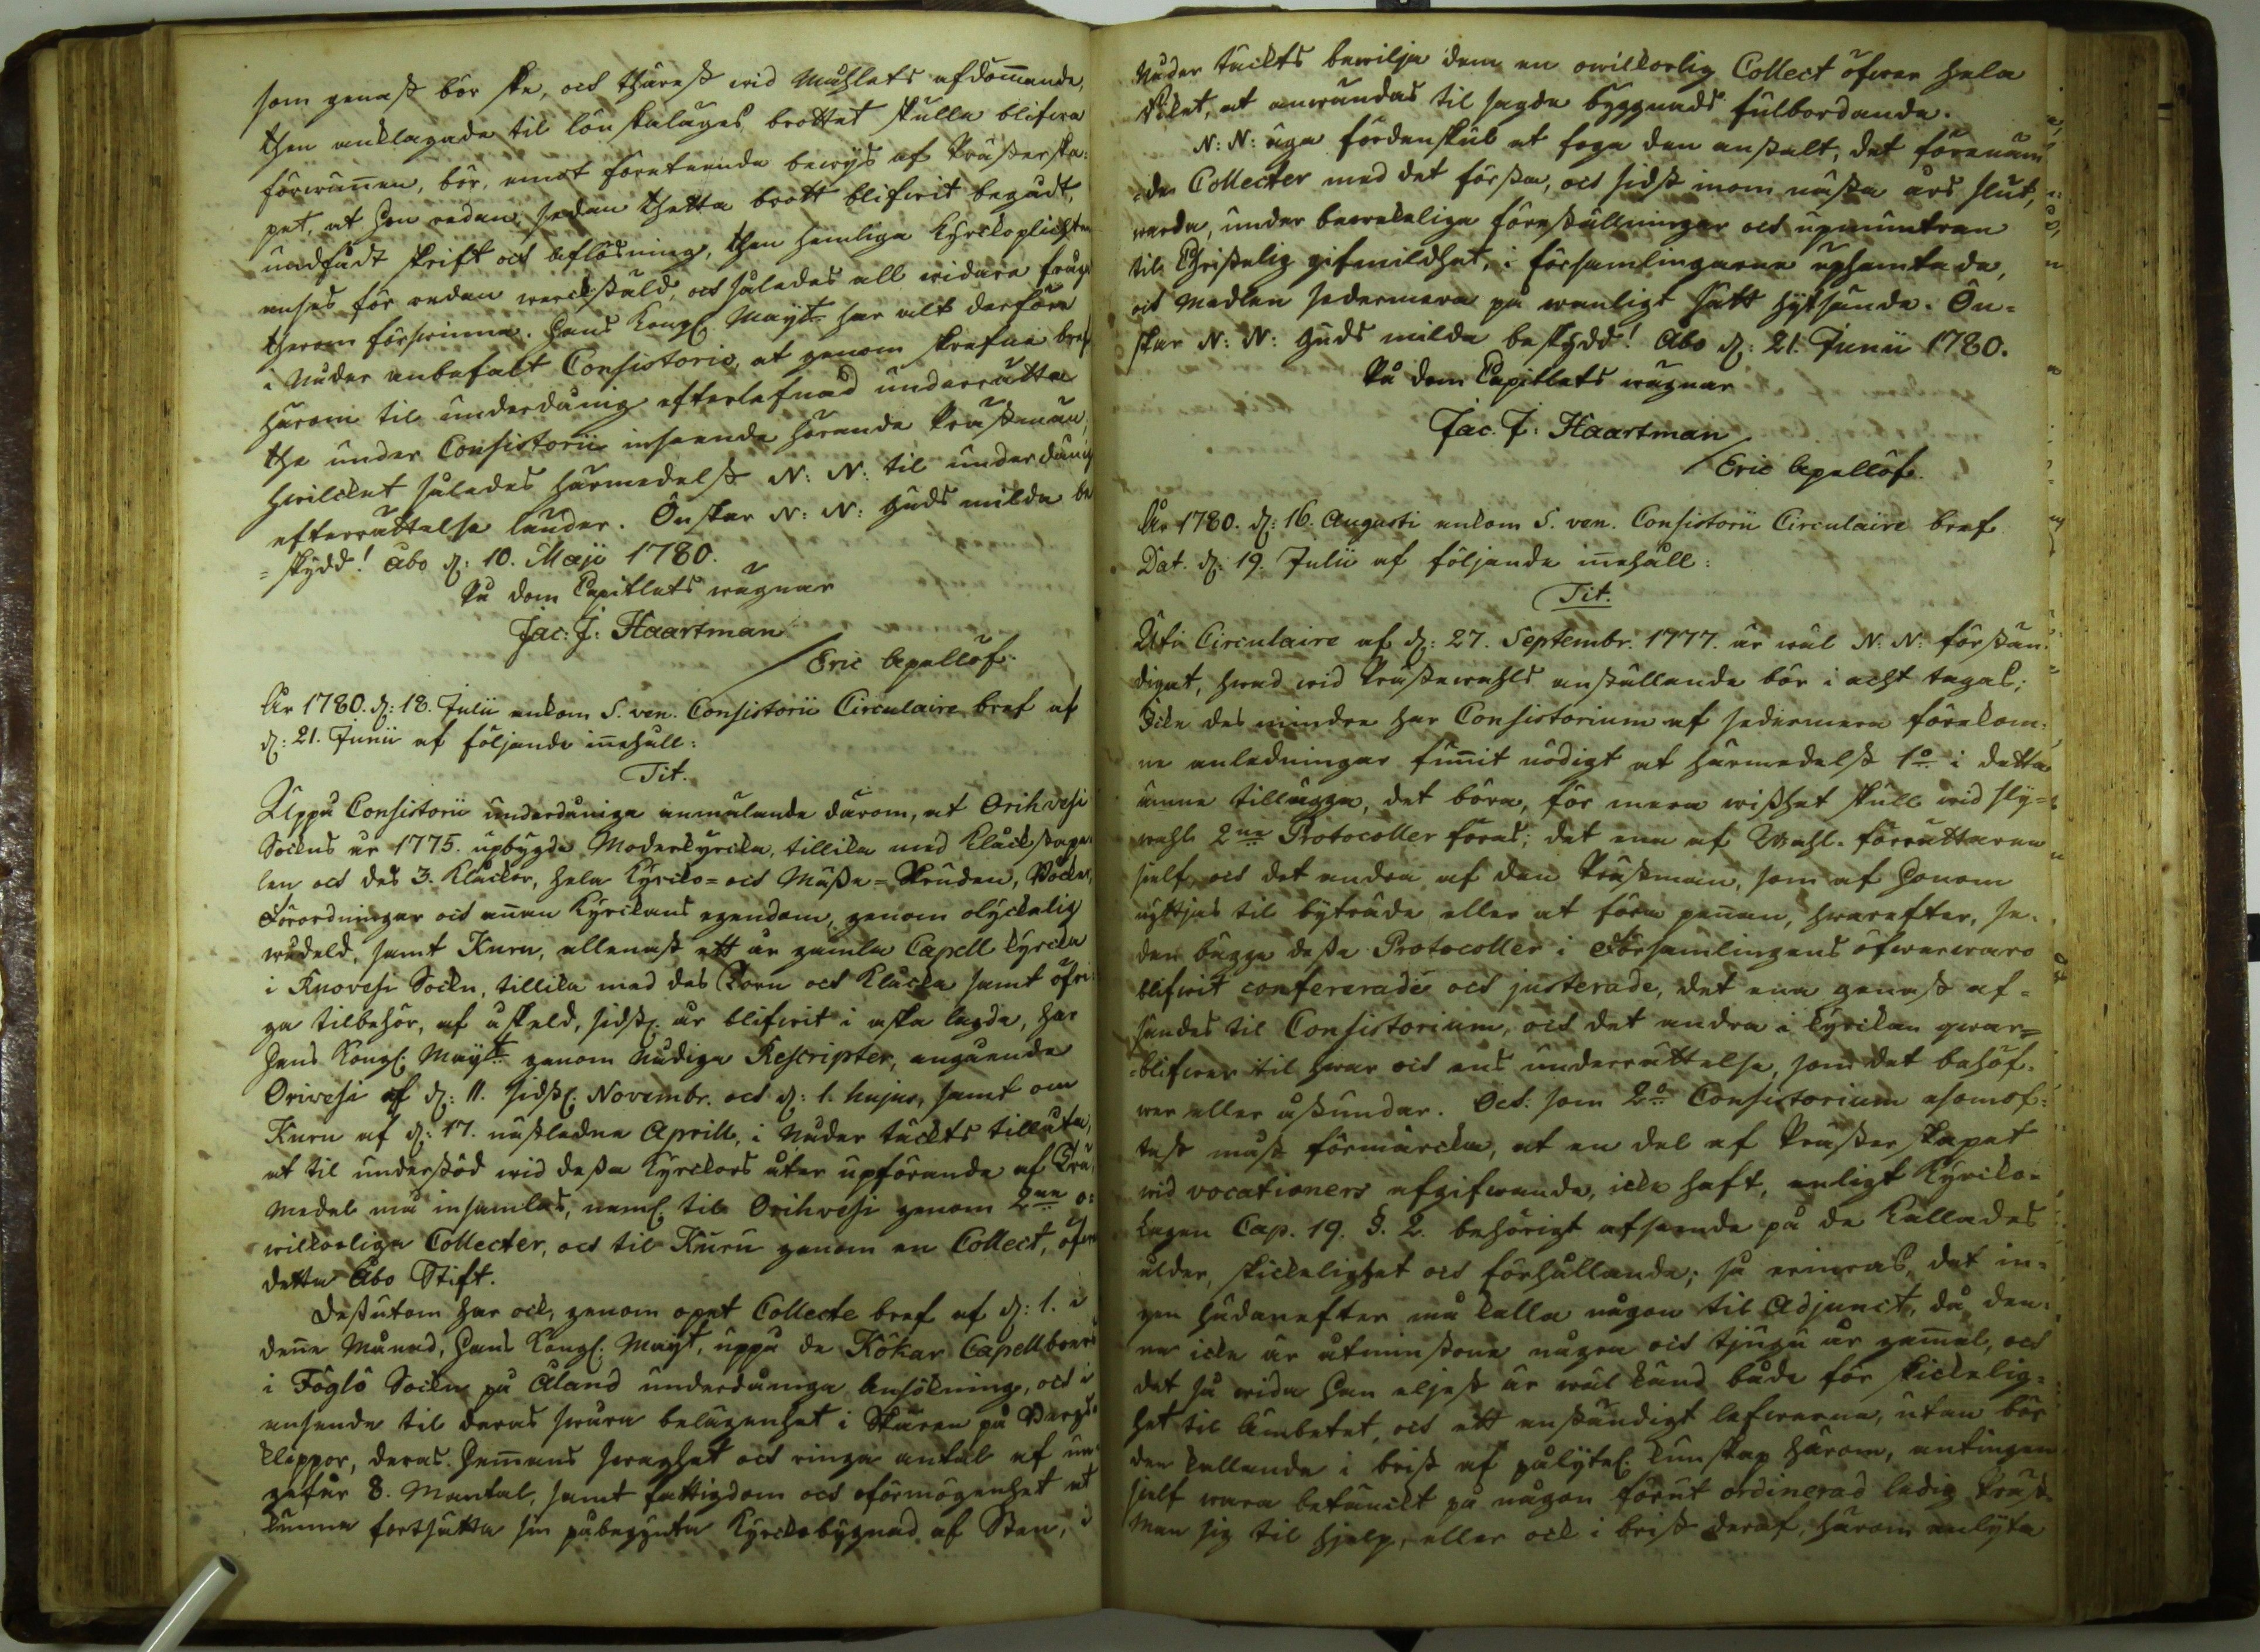 som genast bör ske, och thärest wid Måhlets afdömmande,
then anklagade til lönskalägs brottet skulle blifwa
förwunnen, bör, emot företeende bewijs af Prästerska-
pet, at hon redan, sedan thetta brott blifwit begådt,
undfådt skrift och aflösning, then hemliga Kyrckoplichten
anses för redan werckstäld, och således all widare fråga
therom förswinna. Hans Kongl. Mayt. har alt derföre
i Nåder anbefalt Consistorio, at genom skrefne bref
härom til underdånig efterlefnad underrätta
the under Consistorii inseende hörande Prästemän,
hwilcket således härmedelst N: N: til underdånig
efterrättelse länder. Önskar N: N: Guds milda be-
=skydd! Åbo d: 10. Maji 1780.
På dom Capitlets wägnar
Jac: J: Haartman
/ Eric Apellöf.
År 1780. d: 18. Julii ankom S. ven. Consistorii Circulaire bref af
d: 21. Junii af följande innehåll:
Tit.
Uppå Consistorii underdåniga anmälande därom, at Orihvesi
Sockns år 1775. upbygda Moderkyrcka, tillika med Klåckstape-
len och des 3. Klåckor, hela Kyrcko= och Mässe=Skruden, Böcker,
Förordningar och annan Kyrckans egendom, genom olyckelig
wådeld, samt Kuru, allenast ett år gamla Capell kyrcka
i Ruovesi Sockn, tillika med des Torn och Klåcka samt öfri-
ga tilbehör, af åskeld, sidstl. år blifwit i aska lagde, har
Hans Kongl. Mayt. genom Nådiga Rescripter, angående
Orivesi af d: 11. sidstl. Novembr. och d: 1. hujus, samt om
Kuru af d: 17. nästledne Aprill, i Nåder täckts tillåta,
at til understöd wid dessa Kyrckors åter upförande af Trä,
medel må insamlas, neml. til Orihvesi genom 2ne o-
wilkorliga Collecter, och til Kuru genom en Collect, öfwer
detta Åbo Stift.
Dessutom har ock, genom öpet Collecte bref af d: 1. i
denne Månad, Hans Kongl. Mayt, uppå de Kökar Capellboers
i Föglö Sockn på Åland underdåniga Ansökning, och i
anseende til deras swåra belägenhet i Skären på Bergs-
klippor, deras Hemmans swaghet och ringa antal af un-
gefär 8. Mantal, samt fattigdom och oförmögenhet at
kunna fortsätta sin påbegynta Kyrckobygnad af Sten, i
Nåder täckts bewilja dem en owilkorlig Collect öfwer hela
Riket, at anwändas til sagde byggnads fulbordande.
N: N: äga fördenskul at foga den anstalt, det förenäm
=de Collecter med det första, och sidst inom nästa års slut,
warda, under bewekeliga föreställningar och upmuntran
til Christelig gifmildhet, i församlingarne uphemtade,
och Medlen sedermera på wanligt sätt hytsände. Ön-
skar N: N: Guds milda beskydd! Åbo d: 21. Junii 1780.
På dom Capitlets wägnar
Jac. J: Haartman
/ Eric Apellöf.
År 1780. d: 16. Augusti ankom S. ven. Consistorii Circulaire bref
Dat. d: 19. Julii af följande innehåll:
Tit.
Uti Circulaire af d: 27. Septembr. 1777. är wäl N: N: förstän-
digat, hwad wid Prästewahls anställande bör i acht tagas;
Icke des mindre har Consistorium af sedermera förekom-
ne anledningar funnit nödigt at härmedelst 1o i detta
ämne tillägga, det böra, för mera wisshet skull wid sly=
wahl 2ne Protocoller föras; det ena af Wahl-förrättaren
sielf, och det andra af den Prästman, som af Honom
nyttjas til byträde eller at föra pennan, hwarefter, se-
den bägge desse Protocoller i Församlingens öfwerwaro
blifwit confererade och justerade, det ena genast af-
sändes til Consistorium, och det andra i Kyrckan qwar=
=blifwer til hwar och ens underrättelse, som det behöf-
wer eller åstundar. Och som 2o Consistorium åsomof-
tast måst förmärcka, at en del af Prästerskapet
wid vocationers afgifwande, icke haft, enligt Kyrcko-
Lagen Cap. 19. §. 2. behörigt afseende på de Kallades
ålder, skickelighet och förhållande; så erinras, det in-
gen hädanefter må kalla någon til Adjunct, då den-
ne icke är åtminstone några och tjugu år gammal, och
det så wida Han eljest är wäl känd både för skickelig-
het til Ämbetet, och ett anständigt lefwerne, utan bör
den kallande i brist af pålytel. kunskap härom, antingen
sielf wara betänckt på någon förut ordinerad ledig Präst-
Man sig til hjelp, eller ock i brist deraf, härom anlyta